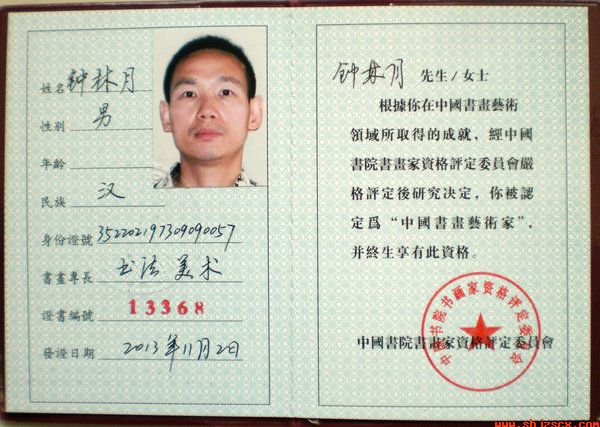 姓名 钟林月
性别 男
年齡
民族 汉
身份證號 352202197309090057
書畫專長 书法 美术
證書編號 13368
發證日期 2013年11月2日
钟林月 先生/女士
根據你在中國書畫藝術
領域所取得的成就，經中國
書院書畫家資格評定委員會嚴
格評定後研究决定，你被認
定爲“中國書畫藝術家”，
并終生享有此資格。
中国书院书画家资格评定委员会
中國書院書畫家資格評定委員會
www.shjzscx.com